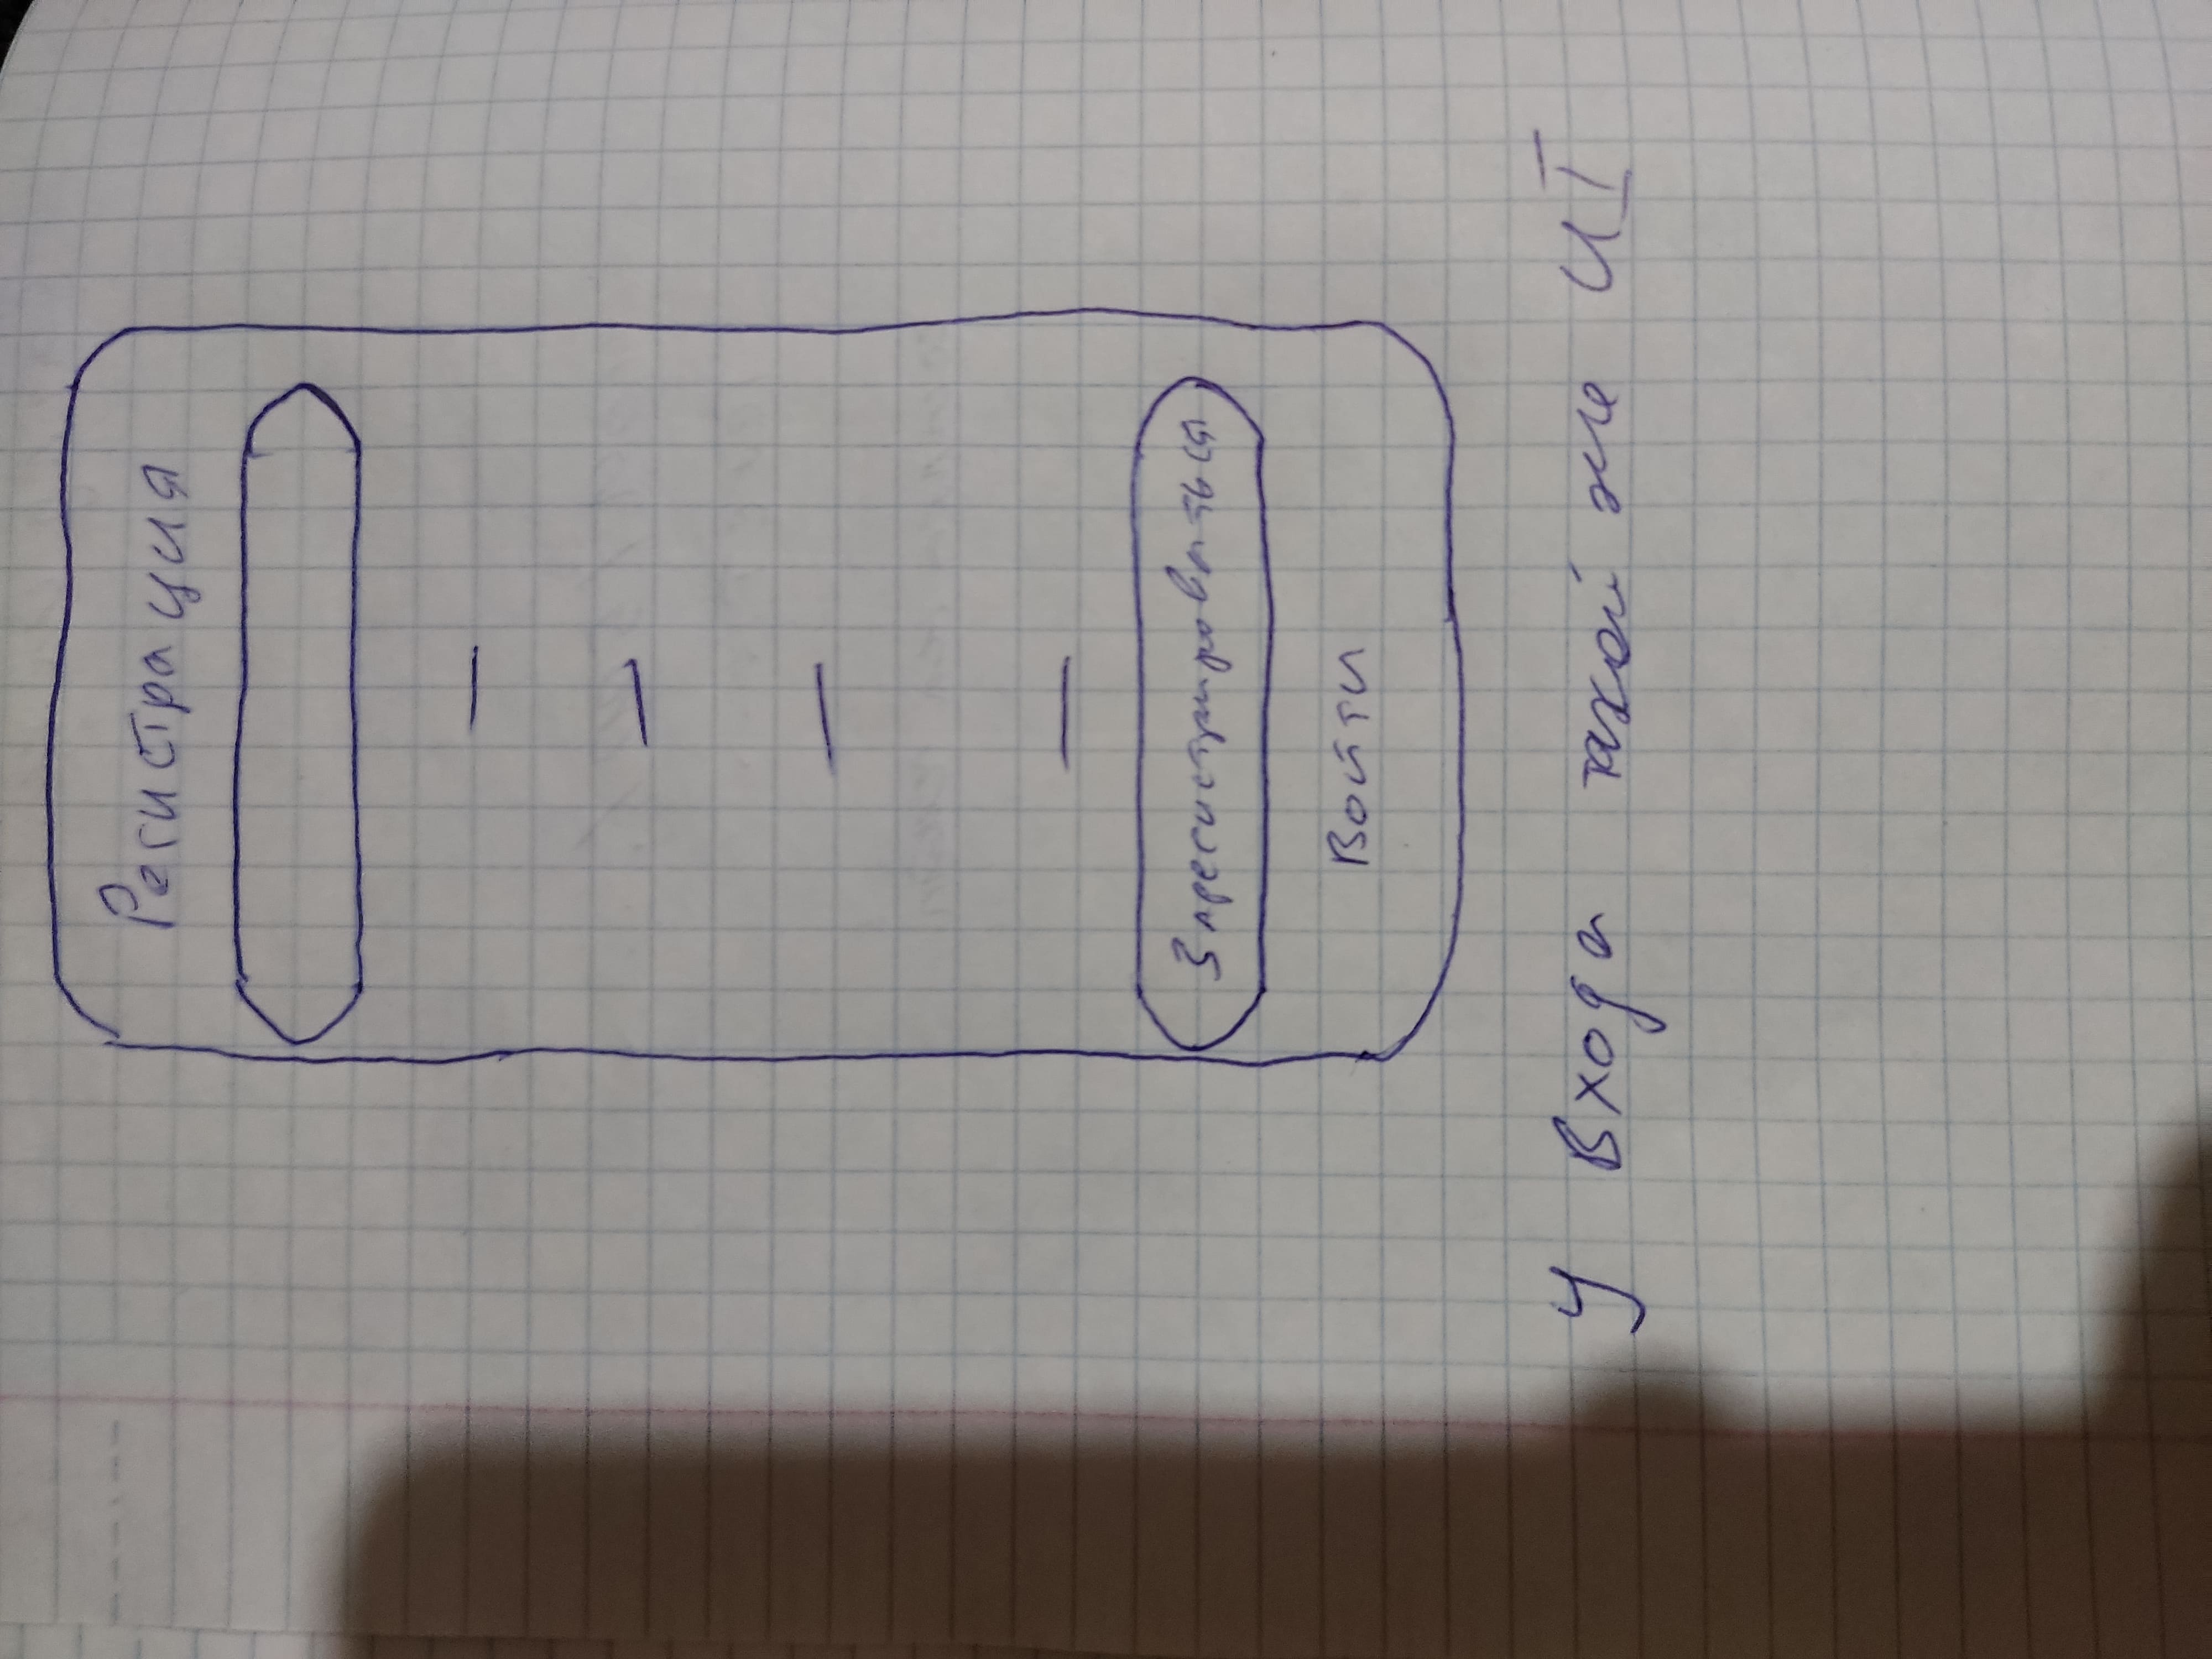 Регистрация
—
—
—
—
Зарегистрироваться
Войти
У Входа такой же UI